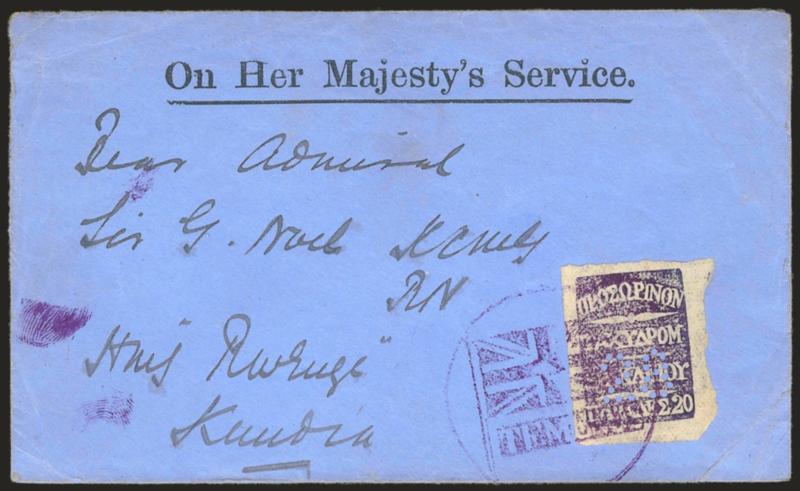 On Her Majesty's Service.
Rear Admiral
Sir G. Noel KCMG
RN
HMS "Revenge"
Kandia
ΠΡΟΣΩΡΙΝΟΝ
ΤΑΧΥΔΡΟΜ
ΠΑΡΑΔΕΣ 20